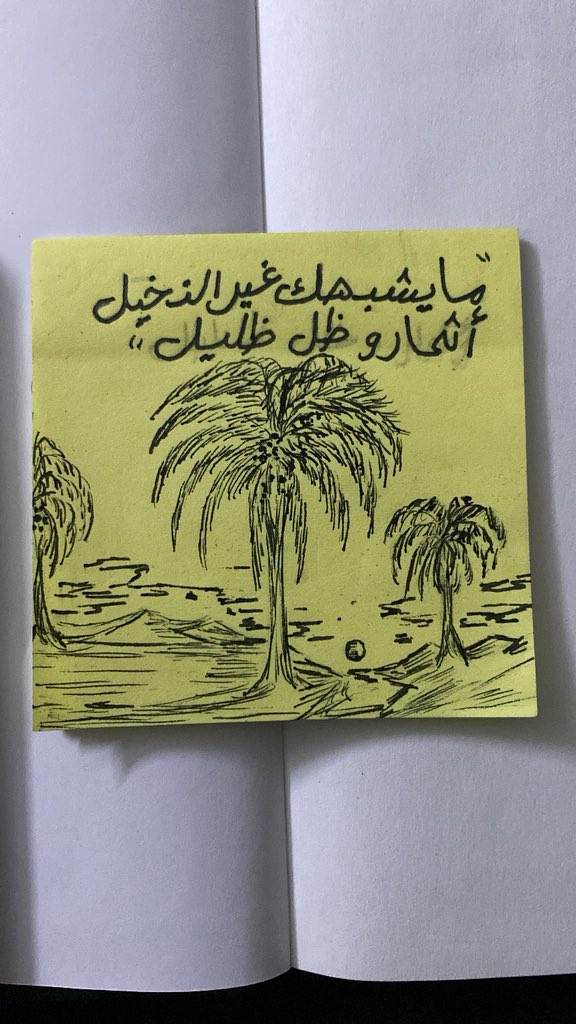 "ما يشبهك غير النخيل
أثمار و ظل ظليل"